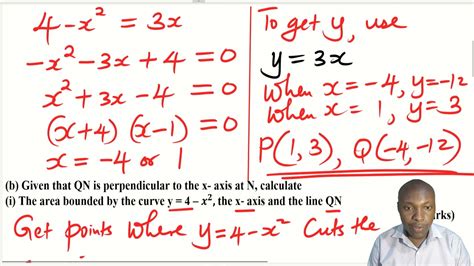 4 - x² = 3x
-x² - 3x + 4 = 0
x² + 3x - 4 = 0
(x+4) (x-1) = 0
x = -4 or 1
To get y, use
y = 3x
When x = -4, y = -12
When x = 1, y = 3
P(1, 3), Q(-4, -12)
(b) Given that QN is perpendicular to the x- axis at N, calculate
(i) The area bounded by the curve y = 4 – x², the x- axis and the line QN
rks)
Get points where y = 4 - x² cuts the